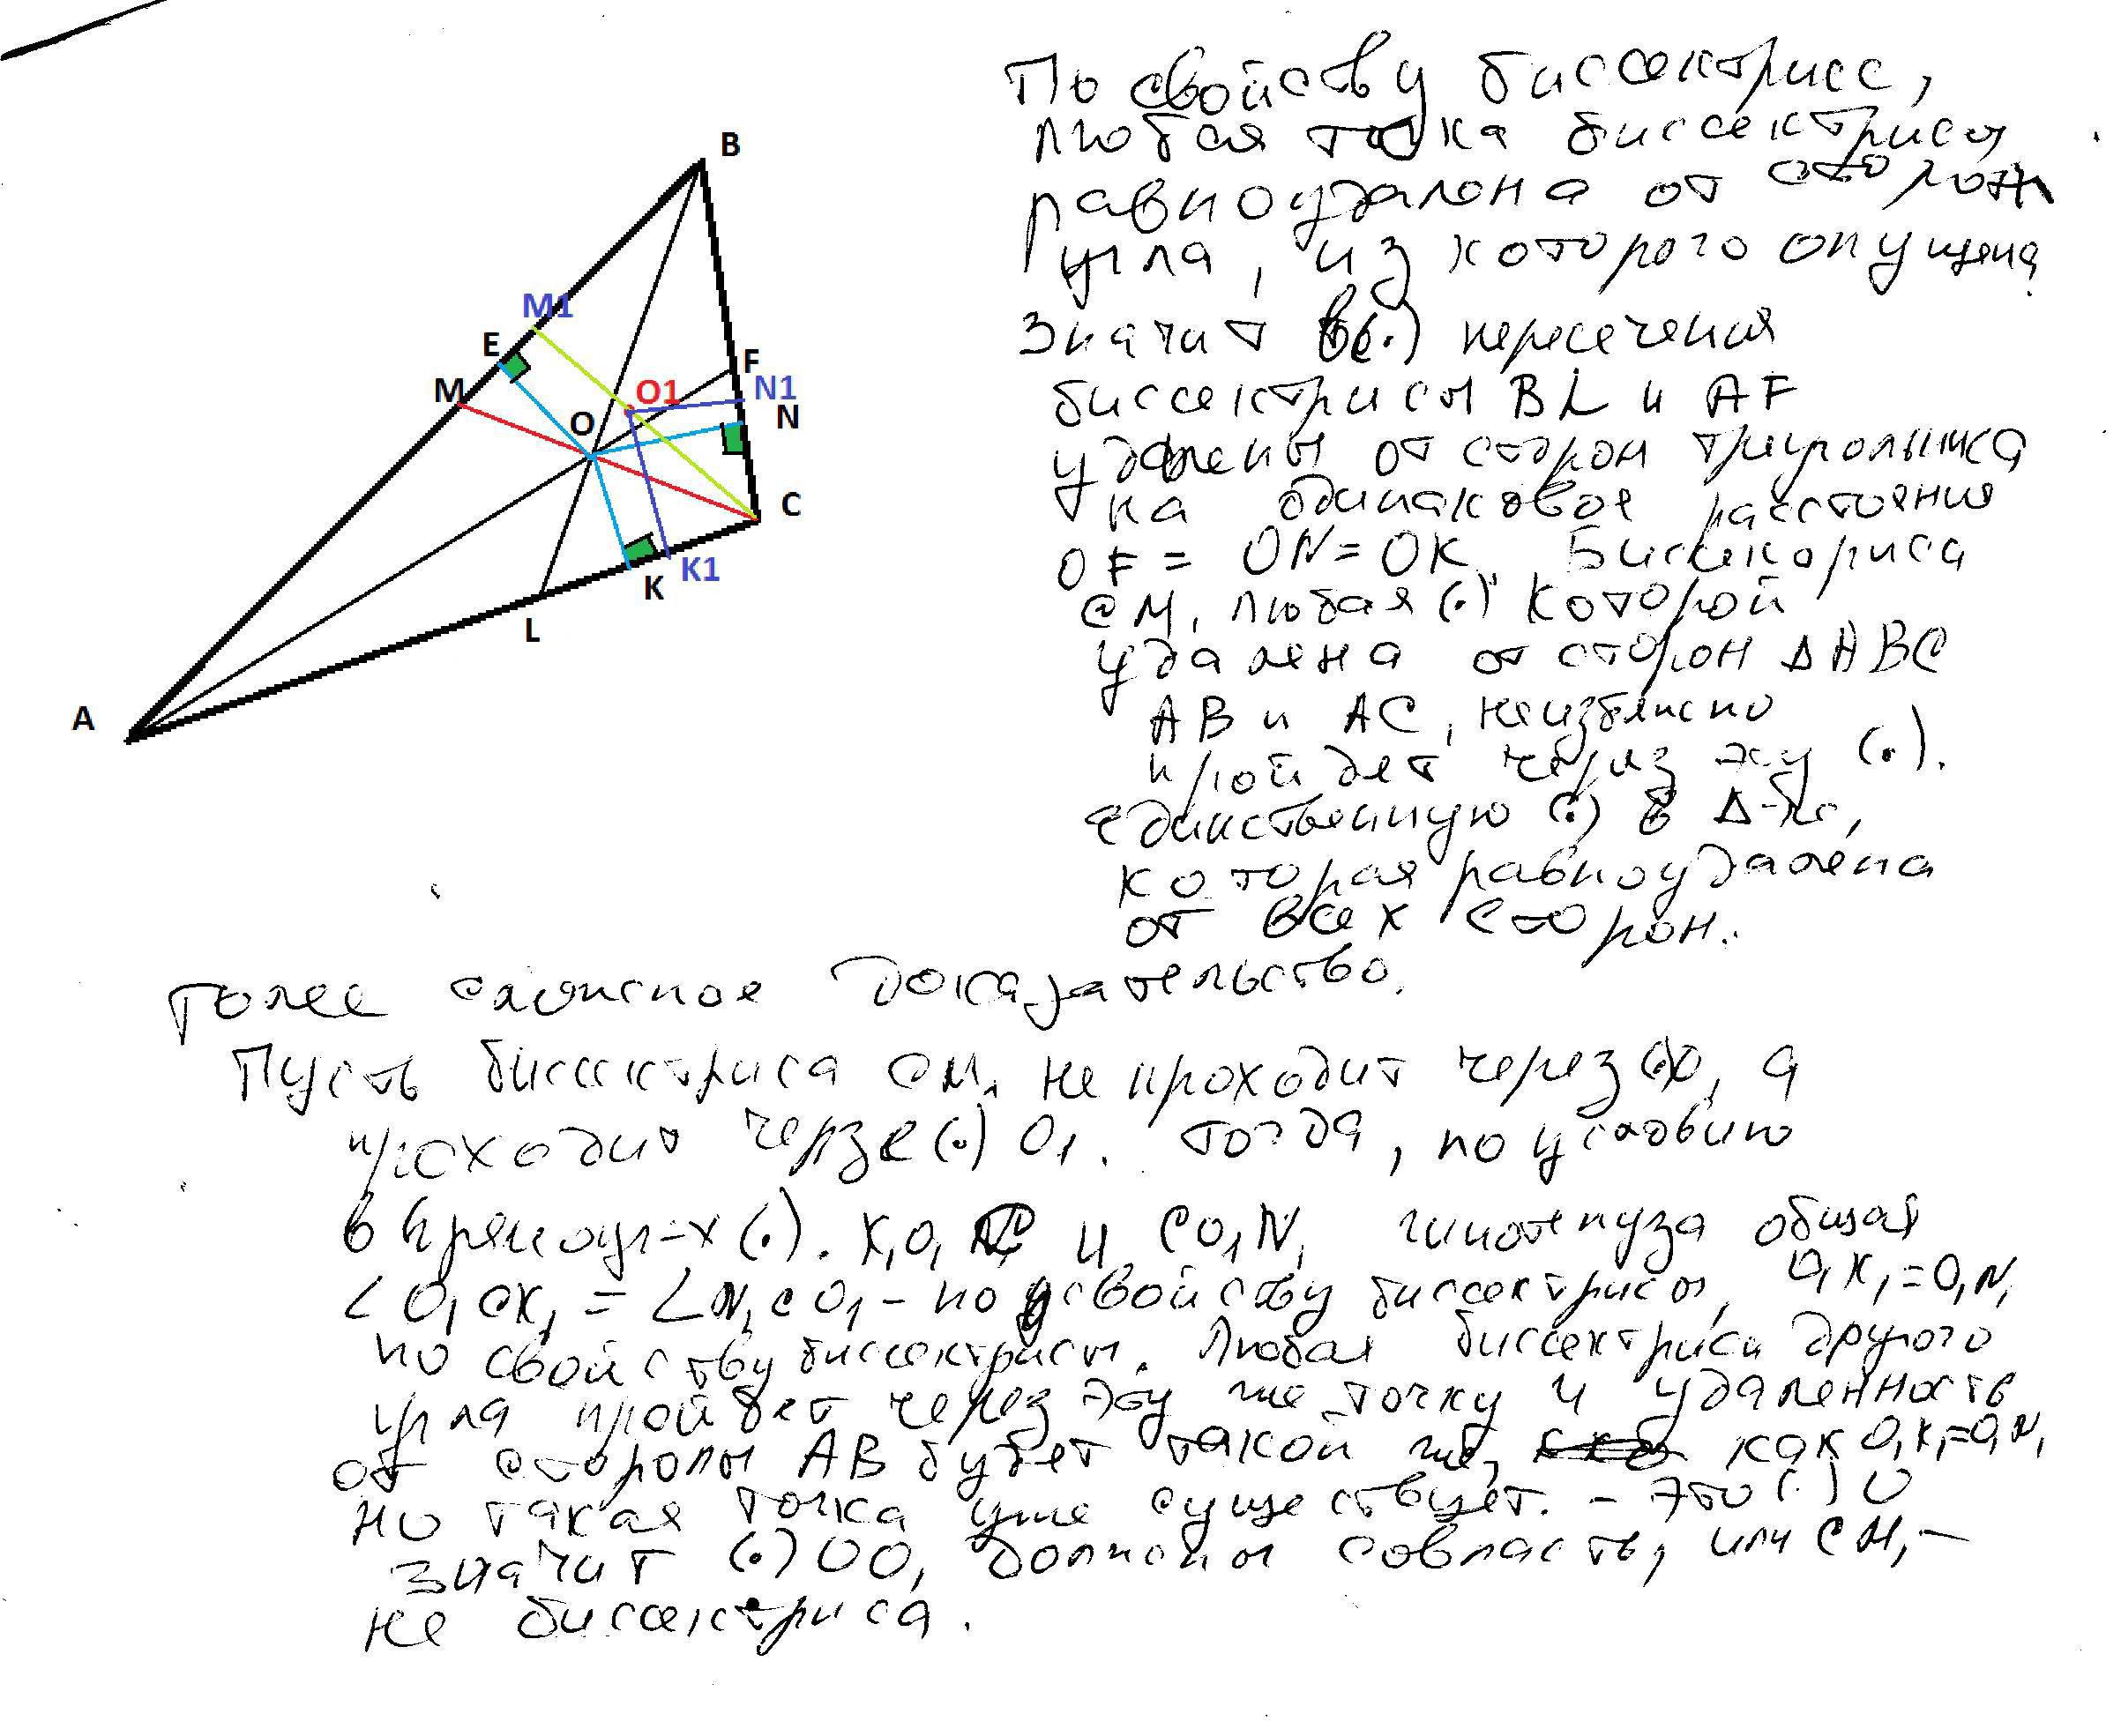 B
M1
E
F
M
O1
N1
O
N
C
K1
K
L
A
По свойству биссектрисс,
любая точка биссектрисы
равноудалена от сторон
угла, из которого опущена
Значит в(.) пересечения
биссектрисы BL и AF
удалены от сторон треугольника
на одинаковое расстояния
OF = ON = OK. Биссектриса
CM, любая (.) которой
удалена от сторон ΔABC
AB и AC, неизбежно
пройдет через эту (.).
единственную (.) в Δ-ке,
которая равноудалена
от всех сторон.
Более сложное доказательство.
Пусть биссектриса CM, не проходит через (.)O, а
проходит через (.) O1. Тогда, по условию
в прямоуг-х (.). K1O1C и CO1N1 гипотенуза общая
∠O1CK1 = ∠N1CO1 - по свойству биссектрисы, O1K1=O1N1
по свойству биссектрисы. Любая биссектриса другого
угла пройдет через эту же точку и удаленность
от стороны AB будет такой же, как O1K1=O1N1
Но такая точка уже существует. - Это (.) O
Значит (.) O O1 должны совпасть, или CM1 -
не биссектриса.